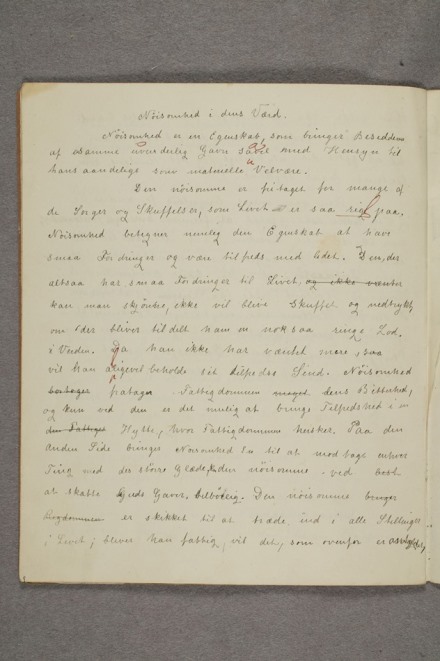 Nøisomhed i dens Værd.
Nøisomhed er en Egenskab, som bringer Besidderen
af samme underlig Gavn saavel med Hensyn til
hans aandelige som materielle Velvære.
Den nøisomme er fritaget for mange af
de Sorger og Skuffelser, som Livet er saa rigt paa.
Nøisomhed betegner nemlig den Egenskab at have
smaa Fordringer og være tilfreds med lidet. Den, der
altsaa har smaa Fordringer til Livet, og ikke venter
kan man skjønne, ikke vil blive skuffet og nedtrykt,
om der bliver tildelt ham en nok saa ringe Lod.
i Verden. Da han ikke har ventet mere, saa
vil han alligevel beholde sit tilfredse Sind. Nøisomhed
betager fratager Fattigdommen meget dens Bitterhed,
og kun ved den er det mulig at bringe Tilfredshed i en
den Fattiges Hytte, hvor Fattigdommen hersker. Paa den
anden Side bringer Nøisomhed En til at modtage enhver
Ting med des større Glæde, den nøisomme ved
at skatte Guds Gaver. Den nøisomme
er skikket til at træde ind i alle Stillinger
i Livet; bliver han fattig, vil det, som ovenfor er